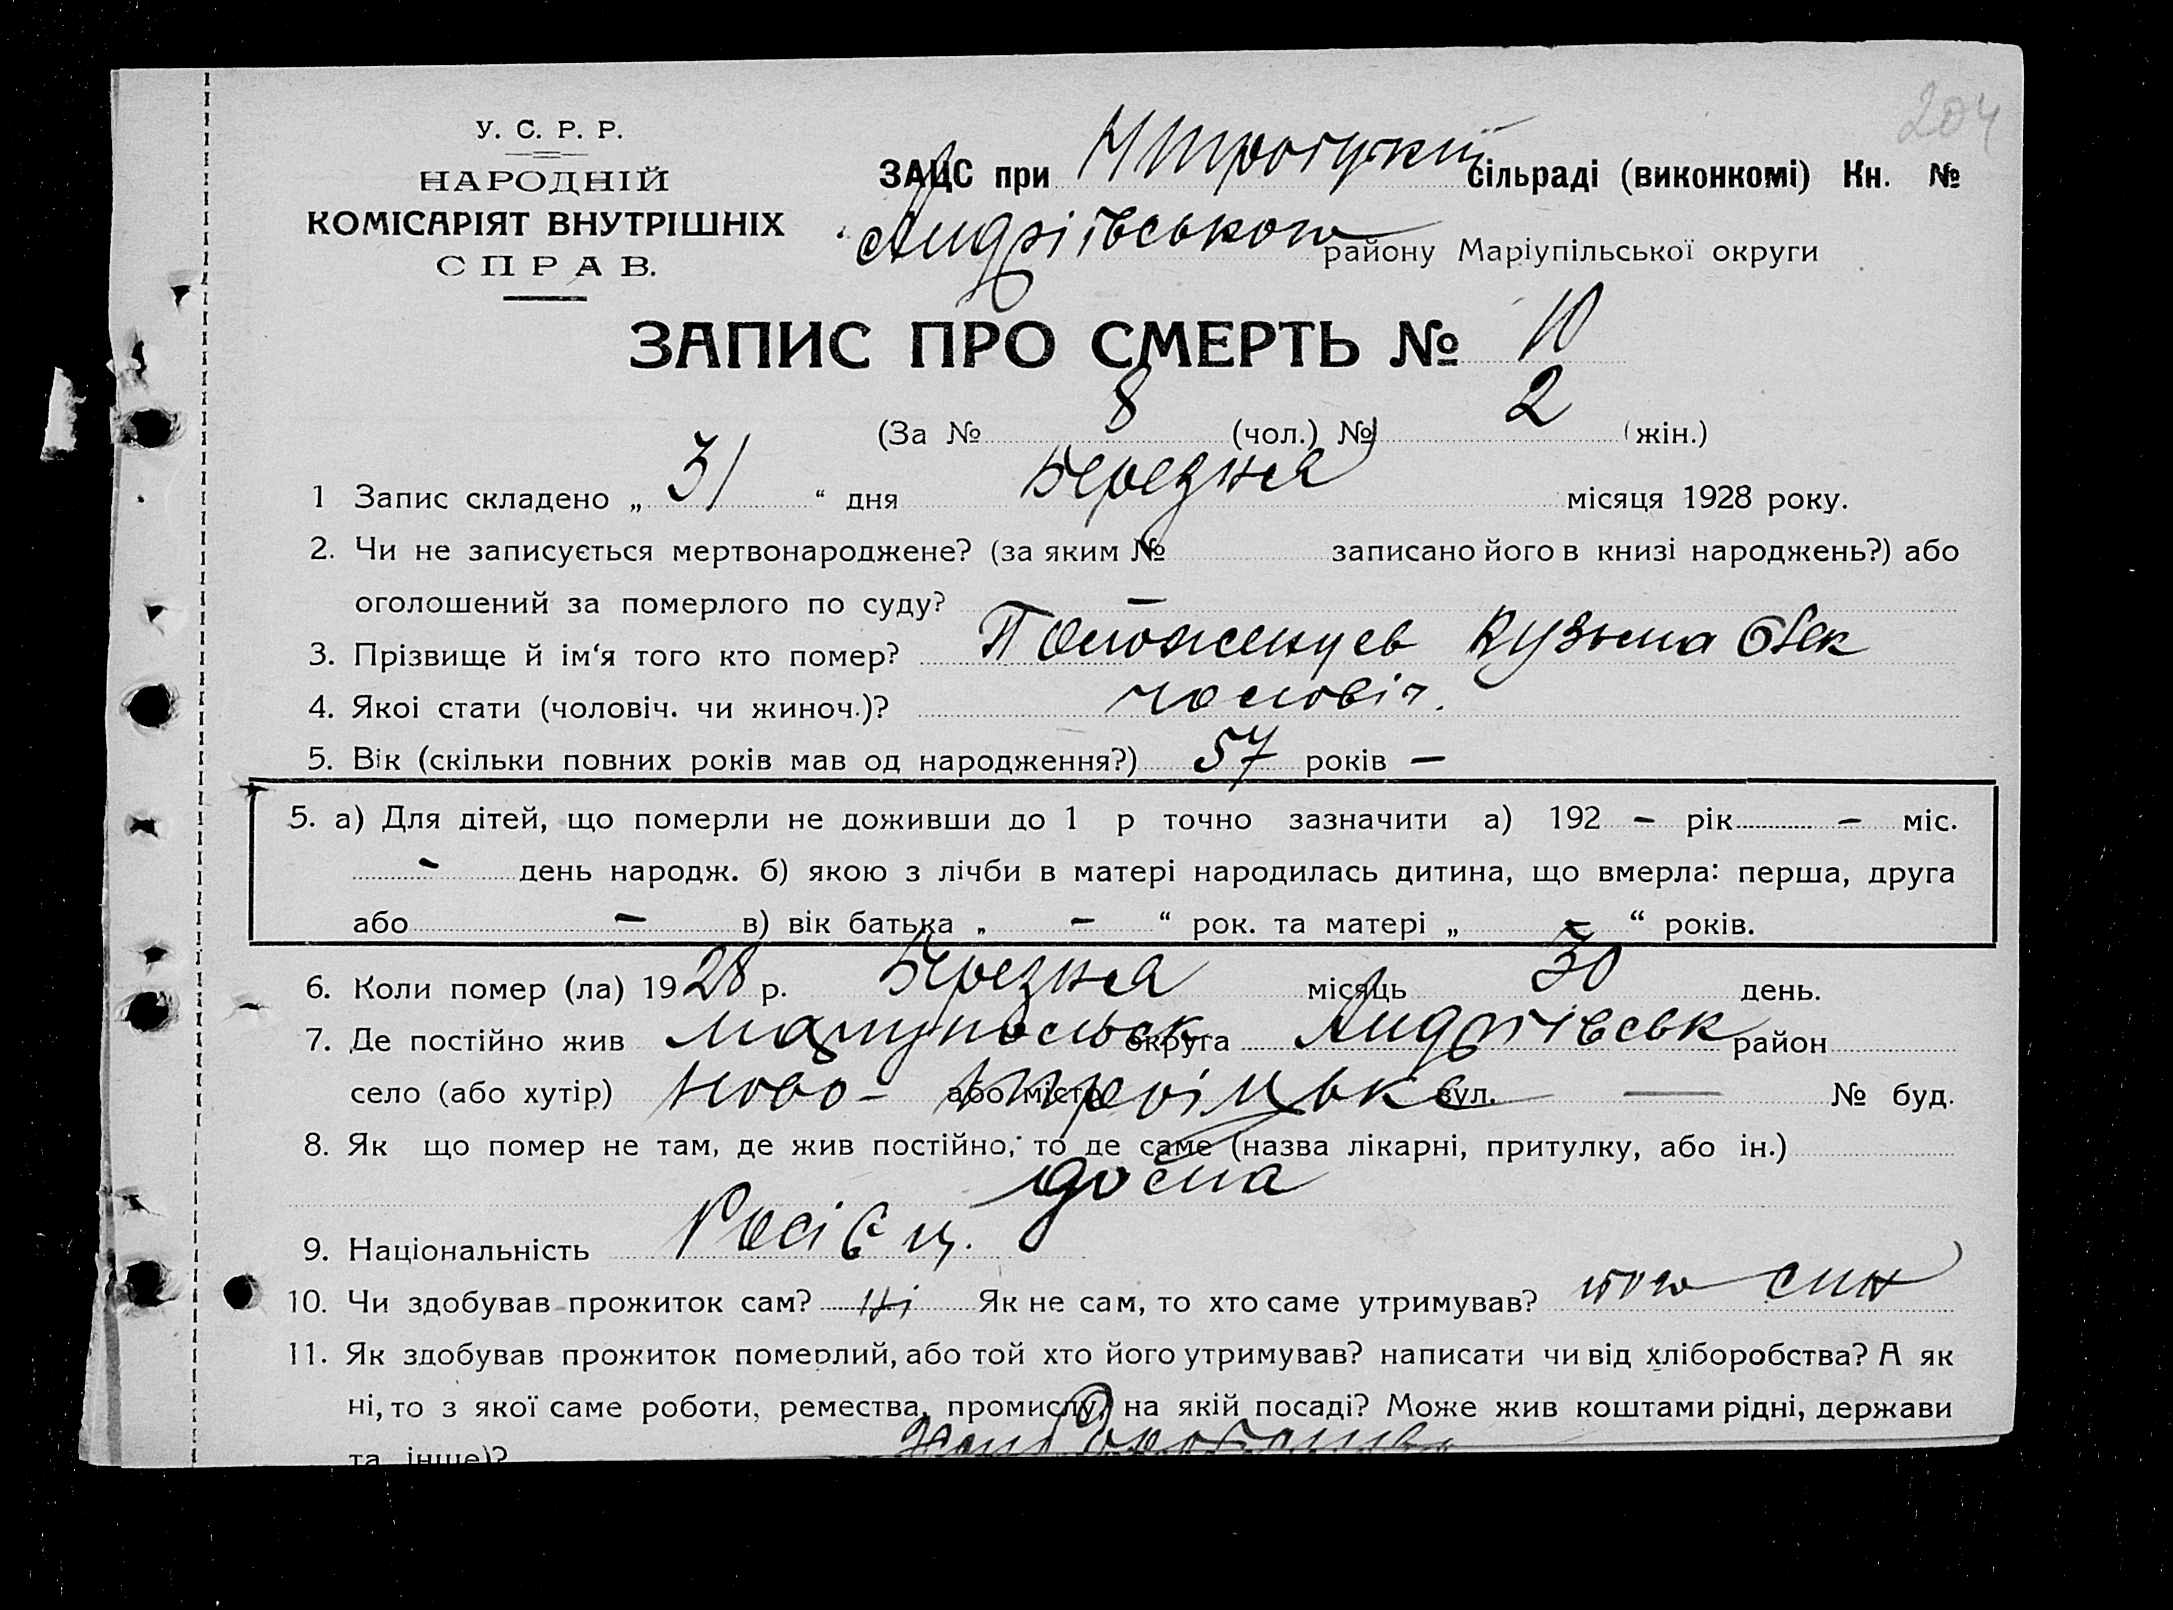 204
У. С. Р. Р.
НАРОДНІЙ
КОМІСАРІЯТ ВНУТРІШНІХ
СПРАВ.
ЗАЦС при сільраді (виконкомі) Кн. №
Андріївського району Маріупільської округи
ЗАПИС ПРО СМЕРТЬ № 10
(За № 8 (чол.) № 2 (жін.)
1 Запис складено „ 31 “ дня Березня місяця 1928 року.
2. Чи не записується мертвонароджене? (за яким № записано його в книзі народжень?) або
оголошений за померлого по суду? —
3. Прізвище й ім‘я того кто помер? Кузьма
4. Якоі стати (чоловіч. чи жиноч.)? чоловіч.
5. Вік (скільки повних років мав од народження?) 57 років —
5. а) Для дітей, що померли не доживши до 1 р точно зазначити а) 192 — рік — міс.
— день народж. б) якою з лічби в матері народилась дитина, що вмерла: перша, друга
або — в) вік батька „ — “ рок. та матері „ — “ років.
6. Коли помер (ла) 1928 р. Березня місяць 30 день.
7. Де постійно жив округа Андріївськ район
село (або хутір) Ново- або місто вул. — № буд.
8. Як що помер не там, де жив постійно, то де саме (назва лікарні, притулку, або ін.)
дома
9. Національність Росієц.
10. Чи здобував прожиток сам? Ні Як не сам, то хто саме утримував? його син
11. Як здобував прожиток померлий, або той хто його утримував? написати чи від хліборобства? А як
ні, то з якої саме роботи, ремества, промислу, на якій посаді? Може жив коштами рідні, держави
та інше)?